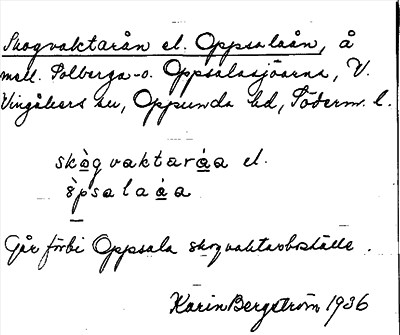 Skogvaktarån el. Oppsalaån, å
mell. Solberga- o. Oppsalasjöarna, V.
Vingåkers sn, Oppunda hd, Söderm. l.
skògvaktaráa el.
òpsalaáa
Går förbi Oppsala skogvaktarboställe.
Karin Bergström 1936